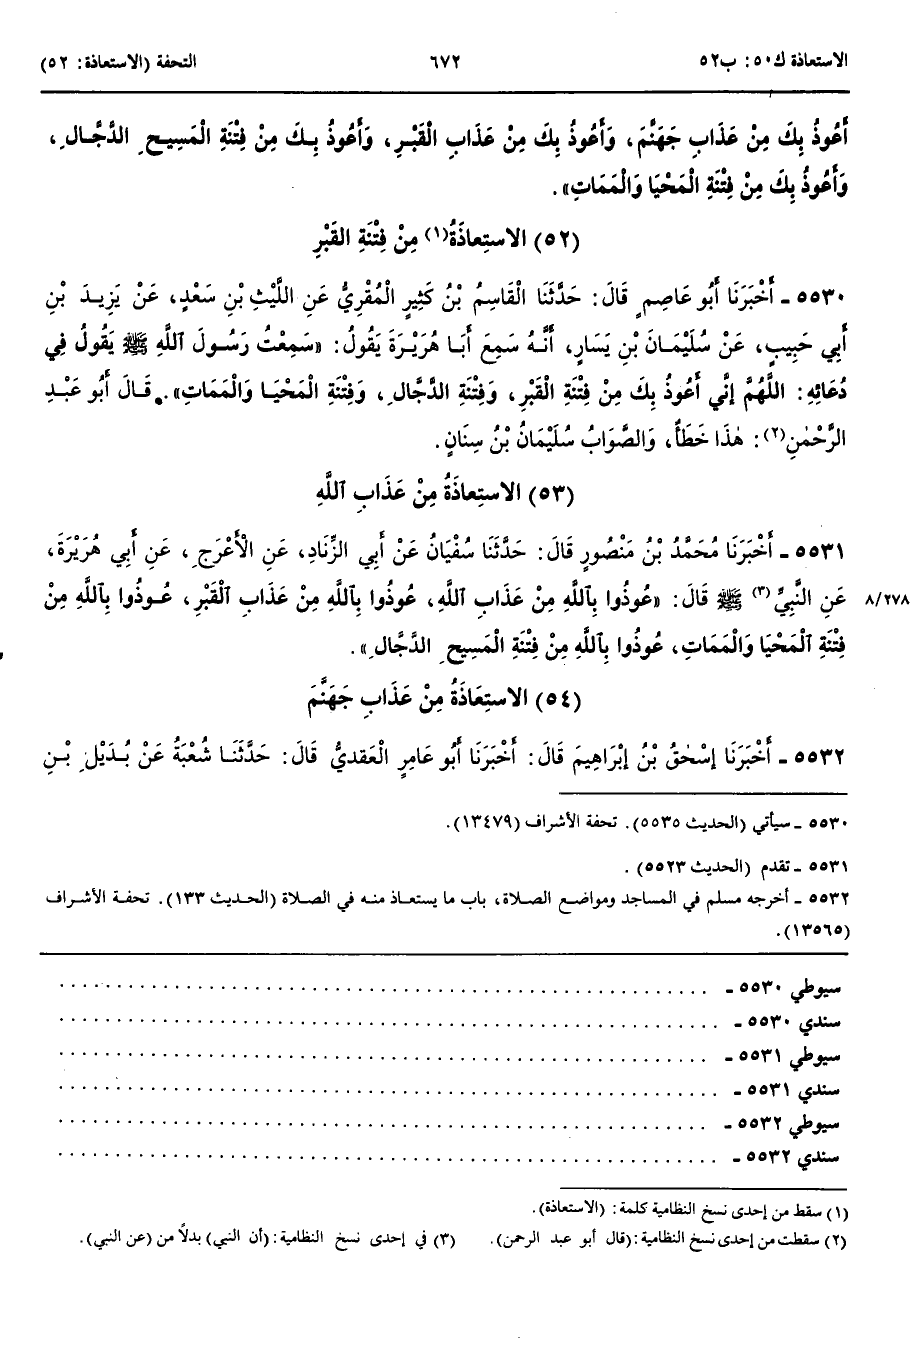 الاستعاذة ك٥٠: ب٥٢ ٦٧٢ التحفة (الاستعاذة: ٥٢)
أَعُوذُ بِكَ مِنْ عَذَابِ جَهَنَّمَ، وَأَعُوذُ بِكَ مِنْ عَذَابِ الْقَبْرِ، وَأَعُوذُ بِكَ مِنْ فِتْنَةِ الْمَسِيحِ الدَّجَّالِ،
وَأَعُوذُ بِكَ مِنْ فِتْنَةِ الْمَحْيَا وَالْمَمَاتِ».
(٥٢) الاستِعاذَةُ(١) مِنْ فِتْنَةِ القَبْرِ
٥٥٣٠ - أَخْبَرَنَا أَبُو عَاصِمٍ قَالَ: حَدَّثَنَا الْقَاسِمُ بْنُ كَثِيرٍ الْمُقْرِيُّ عَنِ اللَّيْثِ بْنِ سَعْدٍ، عَنْ يَزِيدَ بْنِ
أَبِي حَبِيبٍ، عَنْ سُلَيْمَانَ بْنِ يَسَارٍ، أَنَّهُ سَمِعَ أَبَا هُرَيْرَةَ يَقُولُ: «سَمِعْتُ رَسُولَ ٱللَّهِ ﷺ يَقُولُ فِي
دُعَائِهِ: اللَّهُمَّ إِنِّي أَعُوذُ بِكَ مِنْ فِتْنَةِ الْقَبْرِ، وَفِتْنَةِ الدَّجَّالِ، وَفِتْنَةِ الْمَحْيَا وَالْمَمَاتِ». قَالَ أَبُو عَبْدِ
الرَّحْمٰنِ(٢): هٰذَا خَطَأٌ، وَالصَّوَابُ سُلَيْمَانُ بْنُ سِنَانٍ.
(٥٣) الاستِعاذَةُ مِنْ عَذَابِ ٱللَّهِ
٥٥٣١ - أَخْبَرَنَا مُحَمَّدُ بْنُ مَنْصُورٍ قَالَ: حَدَّثَنَا سُفْيَانُ عَنْ أَبِي الزِّنَادِ، عَنِ الْأَعْرَجِ، عَنِ أَبِي هُرَيْرَةَ،
٨/٢٧٨ عَنِ النَّبِيِّ(٣) ﷺ قَالَ: «عُوذُوا بِٱللَّهِ مِنْ عَذَابِ ٱللَّهِ، عُوذُوا بِٱللَّهِ مِنْ عَذَابِ ٱلْقَبْرِ، عُوذُوا بِٱللَّهِ مِنْ
فِتْنَةِ ٱلْمَحْيَا وَالْمَمَاتِ، عُوذُوا بِٱللَّهِ مِنْ فِتْنَةِ الْمَسِيحِ الدَّجَّالِ».
(٥٤) الاستِعَاذَةُ مِنْ عَذَابِ جَهَنَّمَ
٥٥٣٢ - أَخْبَرَنَا إِسْحٰقُ بْنُ إِبْرَاهِيمَ قَالَ: أَخْبَرَنَا أَبُو عَامِرٍ الْعَقَدِيُّ قَالَ: حَدَّثَنَا شُعْبَةُ عَنْ بُدَيْلِ بْنِ
٥٥٣٠ - سيأتي (الحديث ٥٥٣٥). تحفة الأشراف (١٣٤٧٩).
٥٥٣١ - تقدم (الحديث ٥٥٢٣).
٥٥٣٢ - أخرجه مسلم في المساجد ومواضع الصلاة، باب ما يستعاذ منه في الصلاة (الحديث ١٣٣). تحفة الأشراف
(١٣٥٦٥).
سيوطي ٥٥٣٠ - ........................................
سندي ٥٥٣٠ - ........................................
سيوطي ٥٥٣١ - ........................................
سندي ٥٥٣١ - ........................................
سيوطي ٥٥٣٢ - ........................................
سندي ٥٥٣٢ - ........................................
(١) سقط من إحدى نسخ النظامية كلمة: (الاستعاذة).
(٢) سقطت من إحدى نسخ النظامية: (قال أبو عبد الرحمن). (٣) في إحدى نسخ النظامية: (أن النبي) بدلاً من (عن النبي).